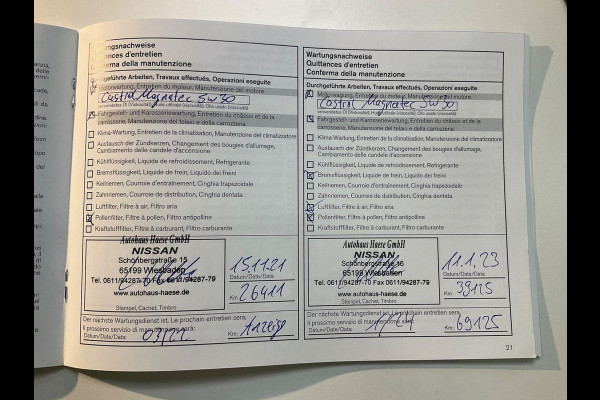 Wartungsnachweise
Quittances d'entretien
Conferma della manutenzione
Durchgeführte Arbeiten, Travaux effectués, Operazioni eseguite
Motorwartung, Entretien du moteur, Manutenzione del motore
Castrol Magnatec 5W30
verwendetes Öl (Viskosität), Huile utilisée (viscosité), Olio usato (viscosità)
Fahrgestell- und Karosseriewartung, Entretien du châssis et de la
carrosserie, Manutenzione del telaio e della carrozzeria
Klima-Wartung, Entretien de la climatisation, Manutenzione del climatizzatore
Austausch der Zündkerzen, Changement des bougies d'allumage,
Cambiamento delle candele d'accensione
Kühlflüssigkeit, Liquide de refroidissement, Refrigerante
Bremsflüssigkeit, Liquide de frein, Liquido dei freini
Keilriemen, Courroie d'entraînement, Cinghia trapezoidale
Zahnriemen, Courroie de distribution, Cinghia dentata
Luftfilter, Filtre à air, Filtro aria
Pollenfilter, Filtre à pollen, Filtro antipolline
Kraftstofffilter, Filtre à carburant, Filtro carburante
Autohaus Haese GmbH
NISSAN
Schönbergstraße 15
65199 Wiesbaden
Tel. 0611/94287-70 Fax 0611/94287-79
www.autohaus-haese.de
Stempel, Cachet, Timbro
15.11.21
Datum/Date/Data
Km: 26411
Der nächste Wartungsdienst ist, Le prochain entretien sera,
Il prossimo servizio di manutenzione sarà:
Datum/Date/Data:
Km: Anzeige
Wartungsnachweise
Quittances d'entretien
Conferma della manutenzione
Durchgeführte Arbeiten, Travaux effectués, Operazioni eseguite
Motorwartung, Entretien du moteur, Manutenzione del motore
Castrol Magnatec 5W30
verwendetes Öl (Viskosität), Huile utilisée (viscosité), Olio usato (viscosità)
Fahrgestell- und Karosseriewartung, Entretien du châssis et de la
carrosserie, Manutenzione del telaio e della carrozzeria
Klima-Wartung, Entretien de la climatisation, Manutenzione del climatizzatore
Austausch der Zündkerzen, Changement des bougies d'allumage,
Cambiamento delle candele d'accensione
Kühlflüssigkeit, Liquide de refroidissement, Refrigerante
Bremsflüssigkeit, Liquide de frein, Liquido dei freini
Keilriemen, Courroie d'entraînement, Cinghia trapezoidale
Zahnriemen, Courroie de distribution, Cinghia dentata
Luftfilter, Filtre à air, Filtro aria
Pollenfilter, Filtre à pollen, Filtro antipolline
Kraftstofffilter, Filtre à carburant, Filtro carburante
Autohaus Haese GmbH
NISSAN
Schönbergstraße 15
65199 Wiesbaden
Tel. 0611/94287-70 Fax 0611/94287-79
www.autohaus-haese.de
Stempel, Cachet, Timbro
11.1.23
Datum/Date/Data
Km: 39125
Der nächste Wartungsdienst ist, Le prochain entretien sera,
Il prossimo servizio di manutenzione sarà:
Datum/Date/Data:
Km: 69125
21